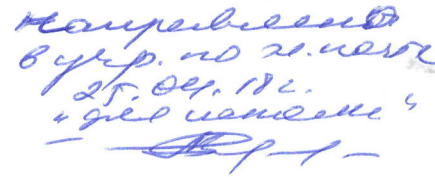 направлено
в учр. по эл. почте
25.04.18г.
"для печати"